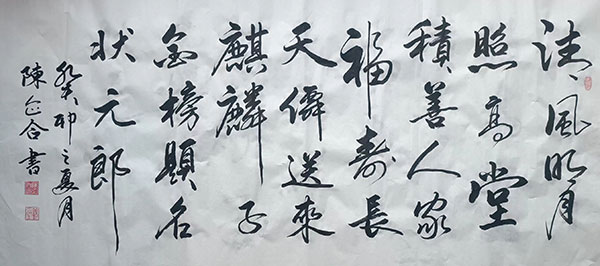 清風明月
照高堂
積善人家
福寿長
天僊送來
麒麟子
金榜題名
状元郎
癸卯之夏月
陳 合書